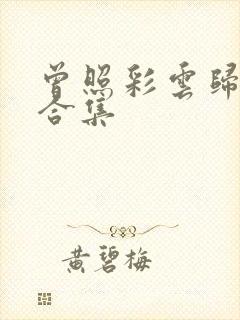 曾照彩雲歸
合集
黄碧梅